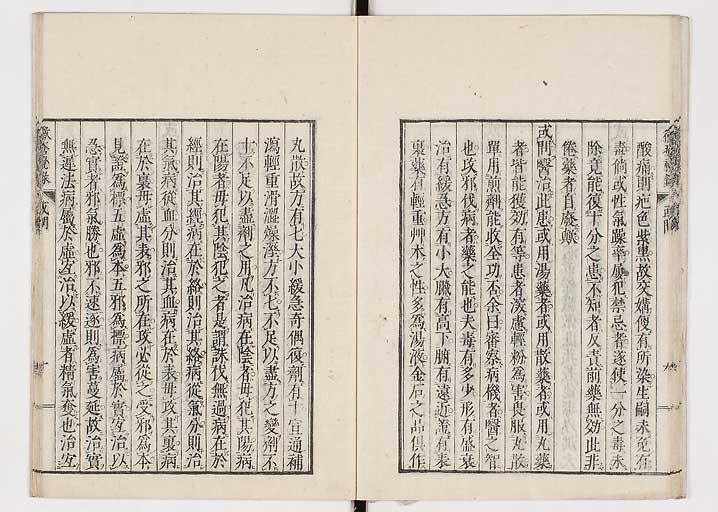 酸痛則疤色紫黑故交媾傻有所染生嗣未免有
毒倘或性氣躁率屢犯禁忌者遂使一分之毒未
除竟能復十分之患不知者反責前藥無効此非
倦藥者自廢歟
或問醫治此患或用湯藥者或用散藥者或用丸藥
者皆能獲効有等患者湥慮輕粉為害畏服丸散
單用煎劑能收全功否余曰審察病機者醫之智
也攻邪伐病者藥之能也夫毒有多少形有盛衰
治有緩急方有小大臟有高下腑有遠近證有表
裏藥有輕重艸木之性多為湯液金石之品俱作
丸散故方有七大小緩急奇偶復劑有十宣通補
瀉輕重滑澀燥濕方不七不足以盡方之變劑不
十不足以盡劑之用凡治病在陰者毋犯其陽病
在陽者毋犯其陰犯之者是謂誅伐無過病在於
經則治其經病在於絡則治其絡病從氣分則治
其氣病從血分則治其血病在於表毋攻其裏病
在於裏毋虛其表邪之所在攻必從之受邪為本
見證為標五虛為本五邪為標病屬於實宜治以
急實者邪氣勝也邪不速逐則為害蔓延故治實
無遲法病屬於虛宜治以緩虛者精氣奪也治宜
黴瘡秘錄
或問